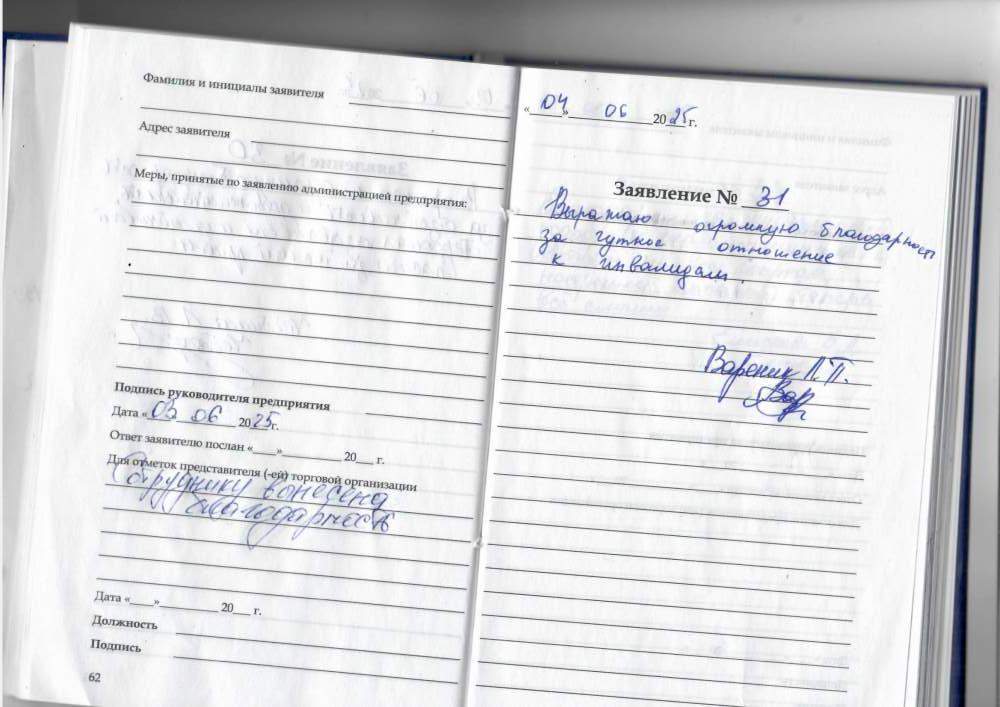 Фамилия и инициалы заявителя
Адрес заявителя
Меры, принятые по заявлению администрацией предприятия:
Подпись руководителя предприятия
Дата « 03 06 2025г.
Ответ заявителю послан «___»__________ 20___ г.
Для отметок представителя (-ей) торговой организации
Сотруднику вынесена
благодарность
Дата «____»__________ 20___ г.
Должность
Подпись
62
« 04 » 06 2025 г.
Заявление № 31
Выражаю огромную благодарность
за чуткое отношение
к инвалидам.
Вареник Л.П.
Вар